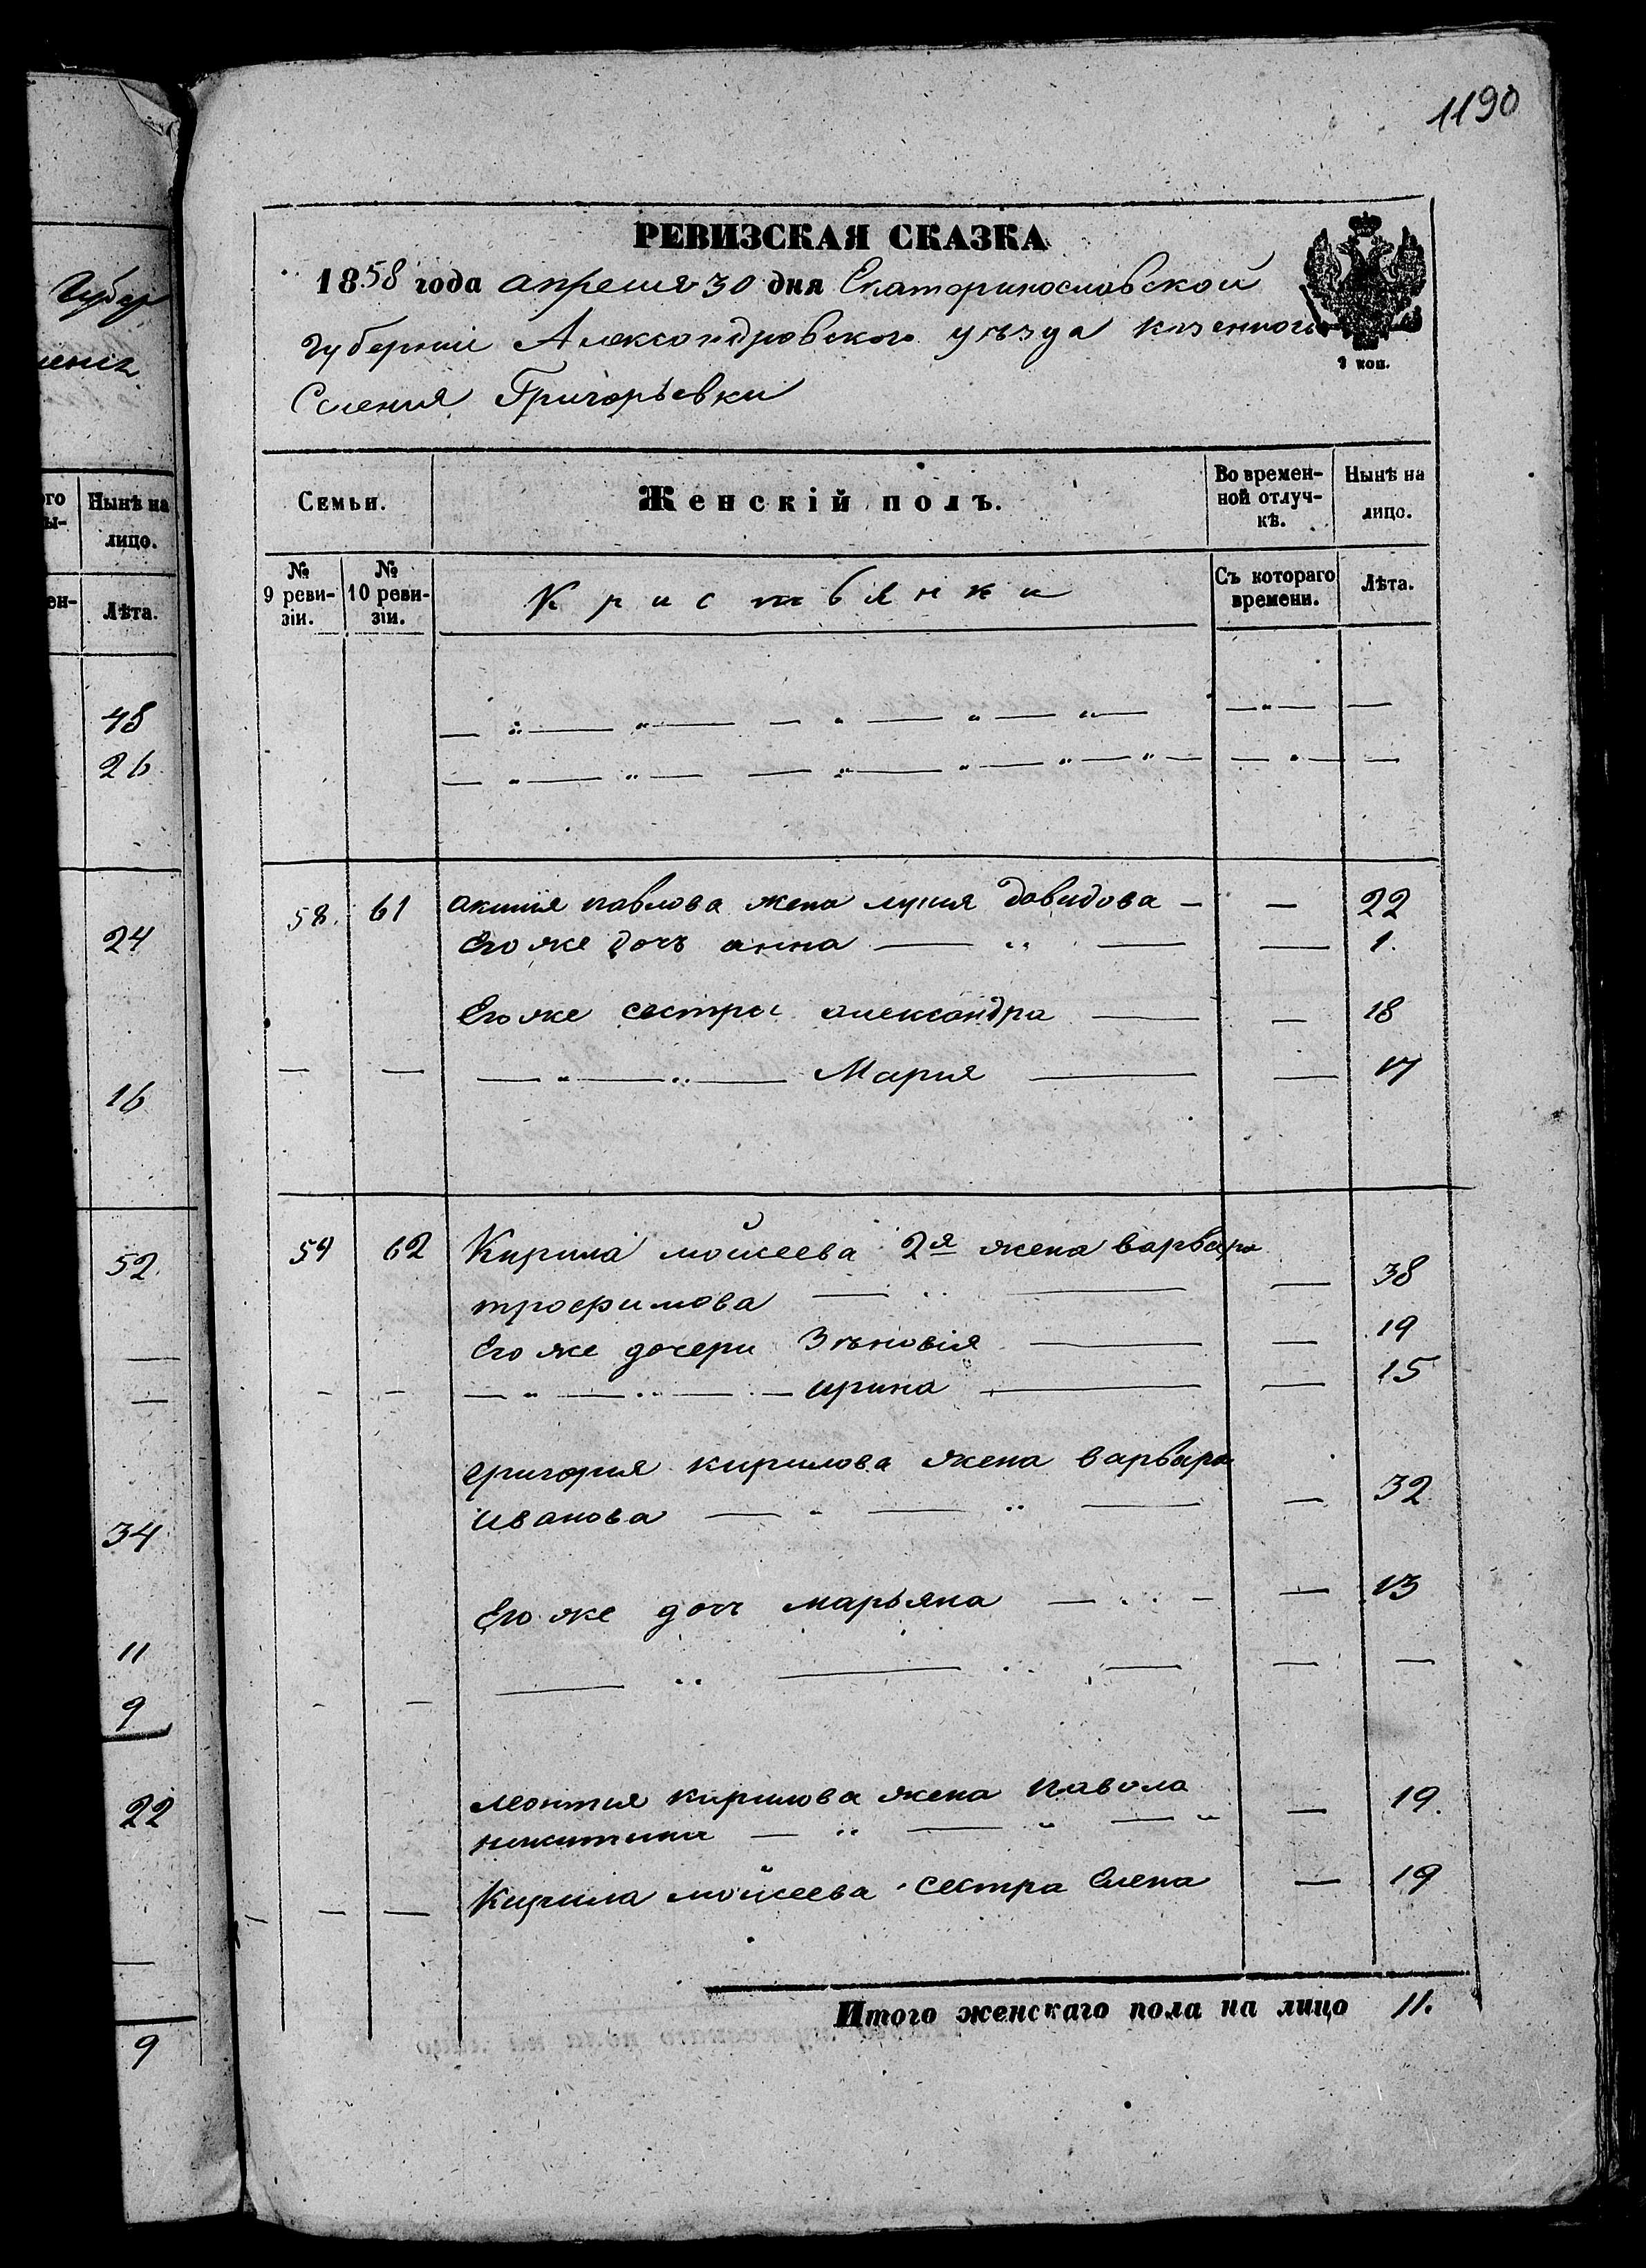 1190
РЕВИЗСКАЯ СКАЗКА
1858 года апреля 30 дня Екатеринославской
губерніи Александровского уѣзда казенного
Селения Григорьевки
2 коп.
Семьи.
Женскій полъ.
Во времен-
ной отлуч-
кѣ.
Нынѣ на
лицо.
№
9 реви-
зіи.
№
10 реви-
зіи.
Кристьянки
Съ котораго
времени.
Лѣта.
58. 61 павлова жена лукия давидова — — 22
Его же дочъ анна — — 1.
Его же сестры александра — — 18
— — Мария — — 17
59 62 Кирила мойсеева 2я жена варвара
трофимова — — 38
Его же дочери Зѣновія — — 19
— — ирина — — 15
григория кирилова жена варвара
иванова — — 32
Его же доч марьяна — — 13
леонтия кирилова жена павола
никитина — — 19.
Кирила мойсеева сестра Елена — 19
Итого женскаго пола на лицо 11.
Губер
Нынѣ на
лицо.
Лѣта.
48
26
24
16
52
34
11
9
22
9